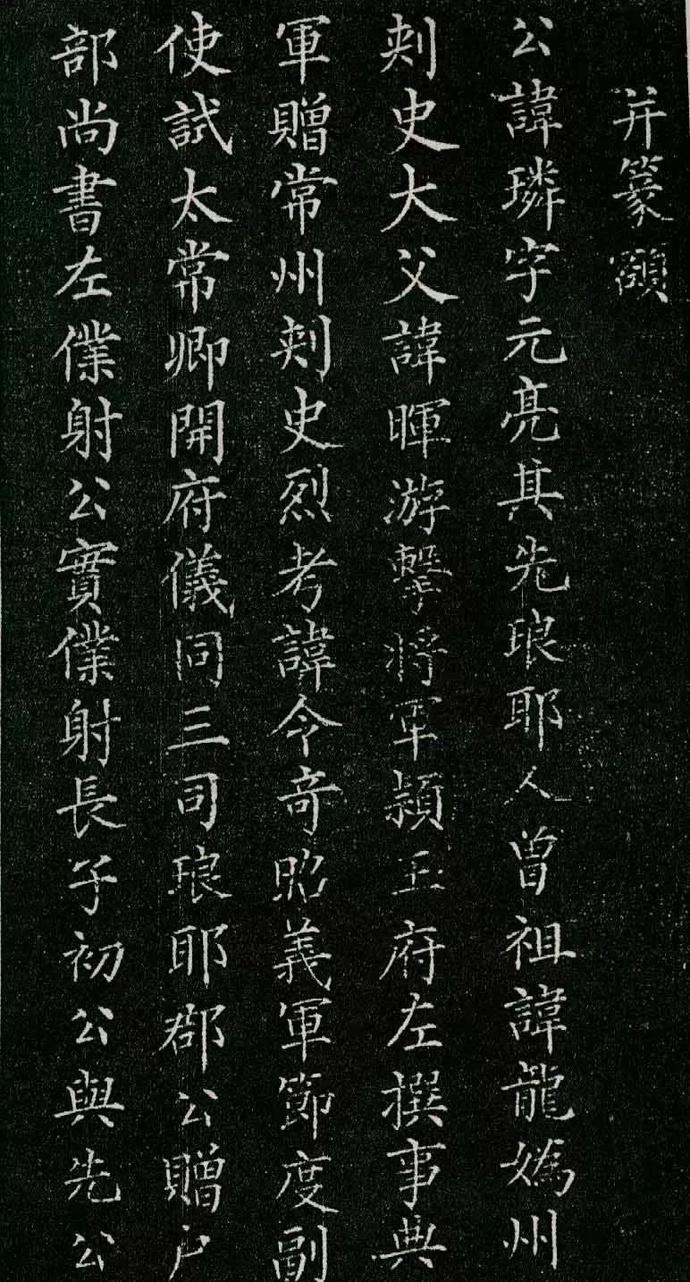 并篆額
公諱璘字元亮其先琅耶人曾祖諱龍嬀州
刺史大父諱暉游擊將軍潁王府左撰事典
軍贈常州刺史烈考諱令奇昭義軍節度副
使試太常卿開府儀同三司琅耶郡公贈戶
部尚書左僕射公實僕射長子初公與先公